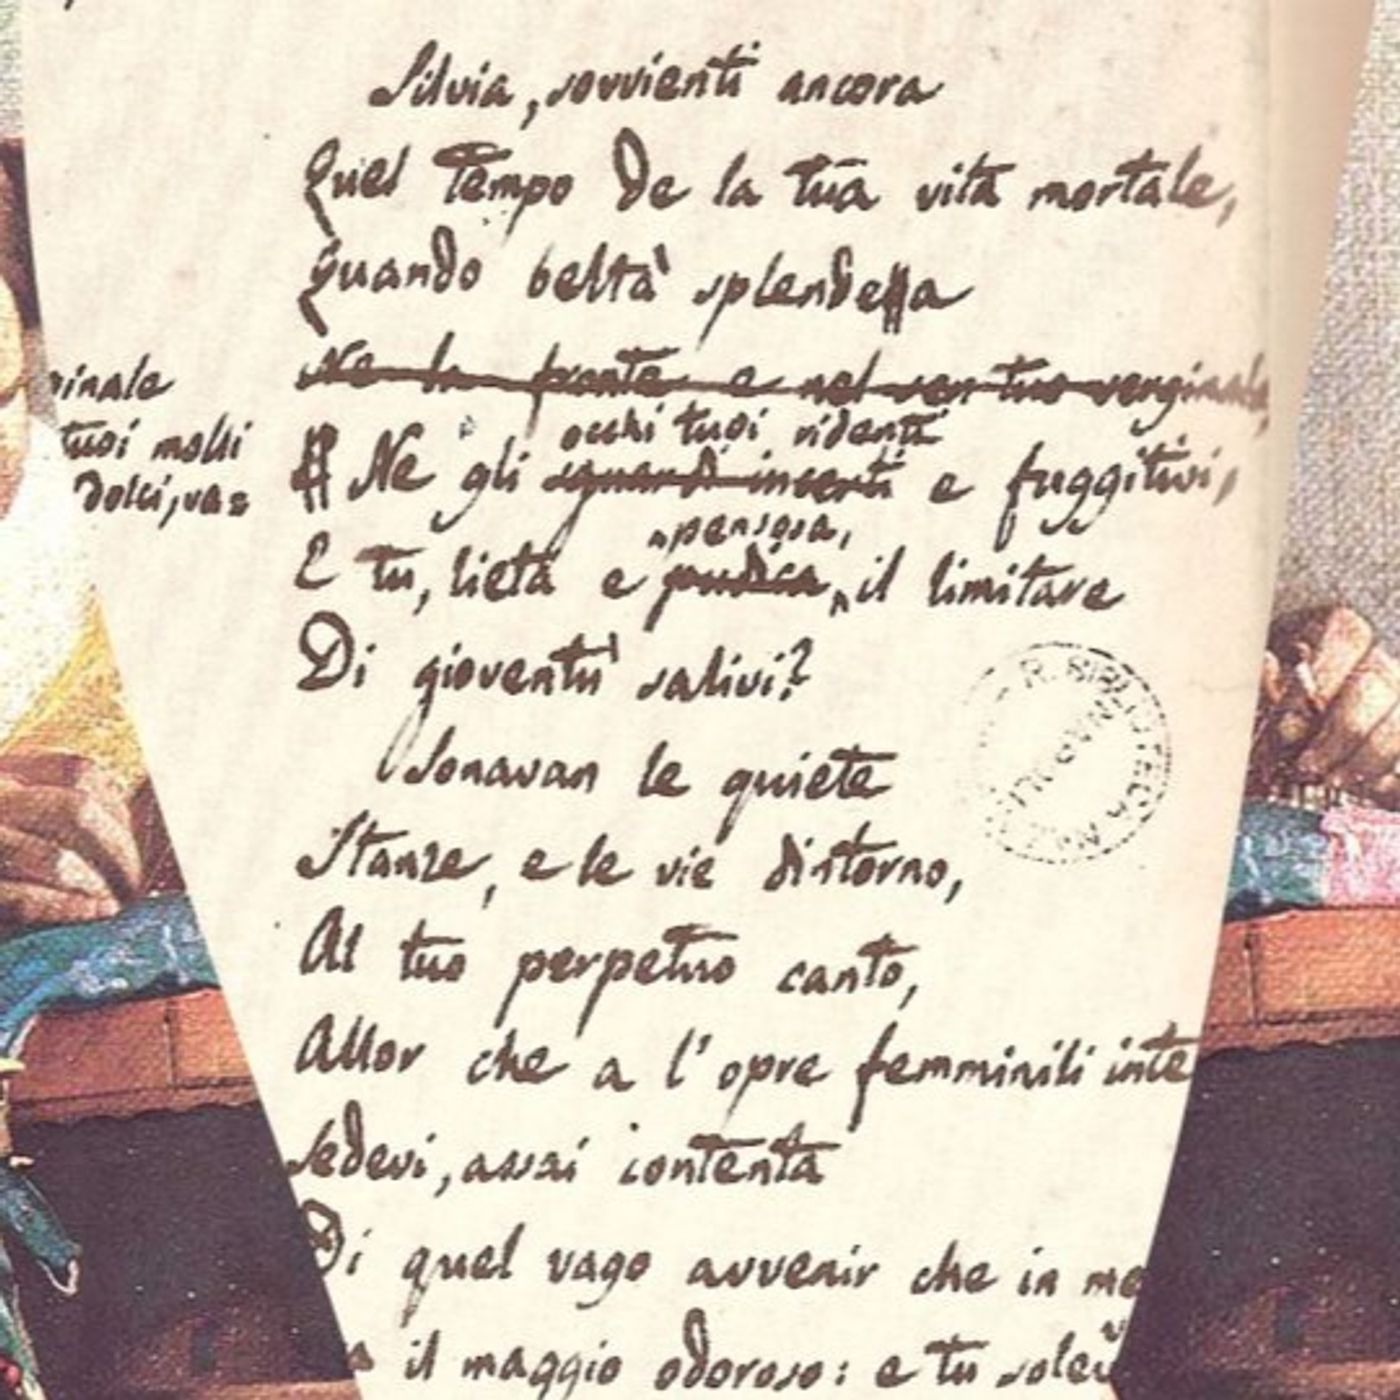 Silvia, sovvienti ancora
Quel tempo de la tua vita mortale,
Quando beltà splendea
Ne la fronte e nel sen tuo verginale,
inale
tuoi molli
dolci, va=
occhi tuoi ridenti
Ne gli sguardi incerti e fuggitivi,
pensosa,
E tu, lieta e pudica, il limitare
Di gioventù salivi?
Sonavan le quiete
Stanze, e le vie dintorno,
Al tuo perpetuo canto,
Allor che a l'opre femminili inte
Sedevi, assai contenta
Di quel vago avvenir che in me
R. BIBLIOTECA NAZ
NAPOLI
il maggio odoroso: e tu solev